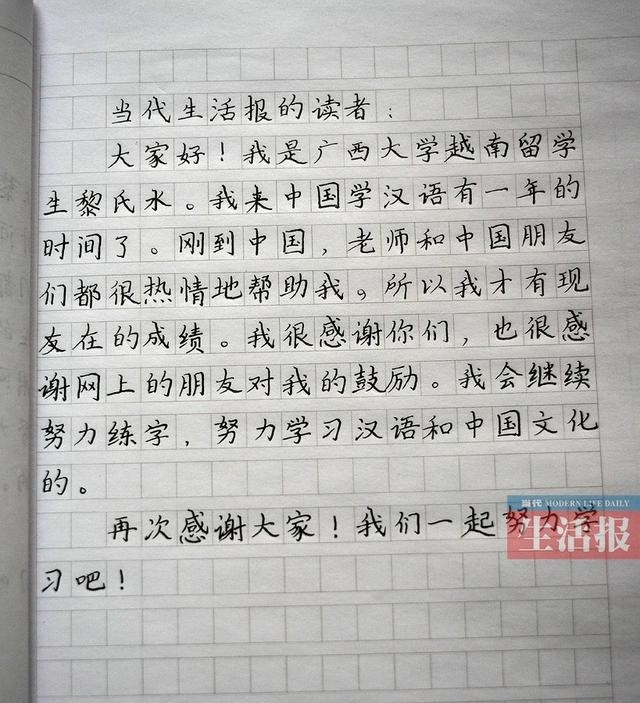 当代生活报的读者：
大家好！我是广西大学越南留学
生黎氏水。我来中国学汉语有一年的
时间了。刚到中国，老师和中国朋友
们都很热情地帮助我。所以我才有现
友在的成绩。我很感谢你们，也很感
谢网上的朋友对我的鼓励。我会继续
努力练字，努力学习汉语和中国文化
的。
再次感谢大家！我们一起努力学
习吧！
当代 MODERN LIFE DAILY
生活报